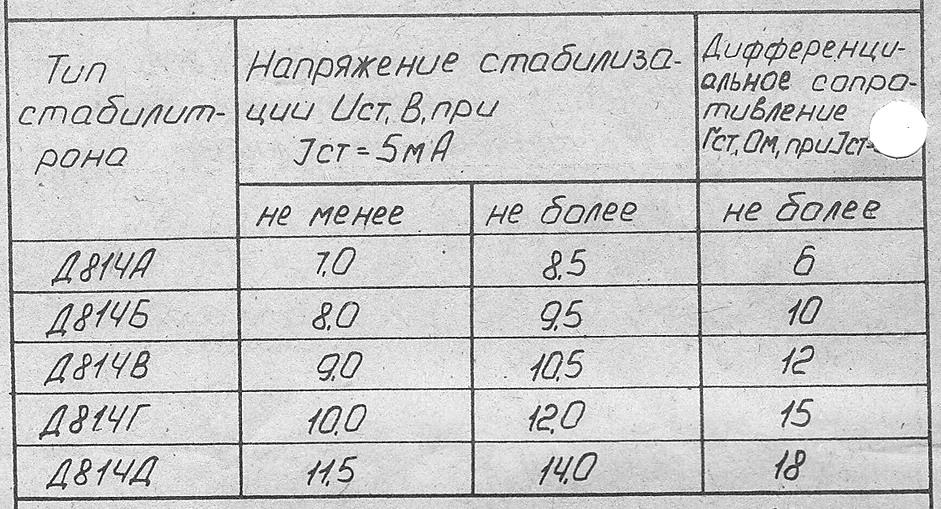 Тип
стабилит-
рона
Напряжение стабилиза-
ции Uст, В, при
Jст = 5мА
Дифференци-
альное сопро-
тивление
rст, Ом, при Jст=
не менее не более не более
Д814А 7,0 8,5 6
Д814Б 8,0 9,5 10
Д814В 9,0 10,5 12
Д814Г 10,0 12,0 15
Д814Д 11,5 14,0 18